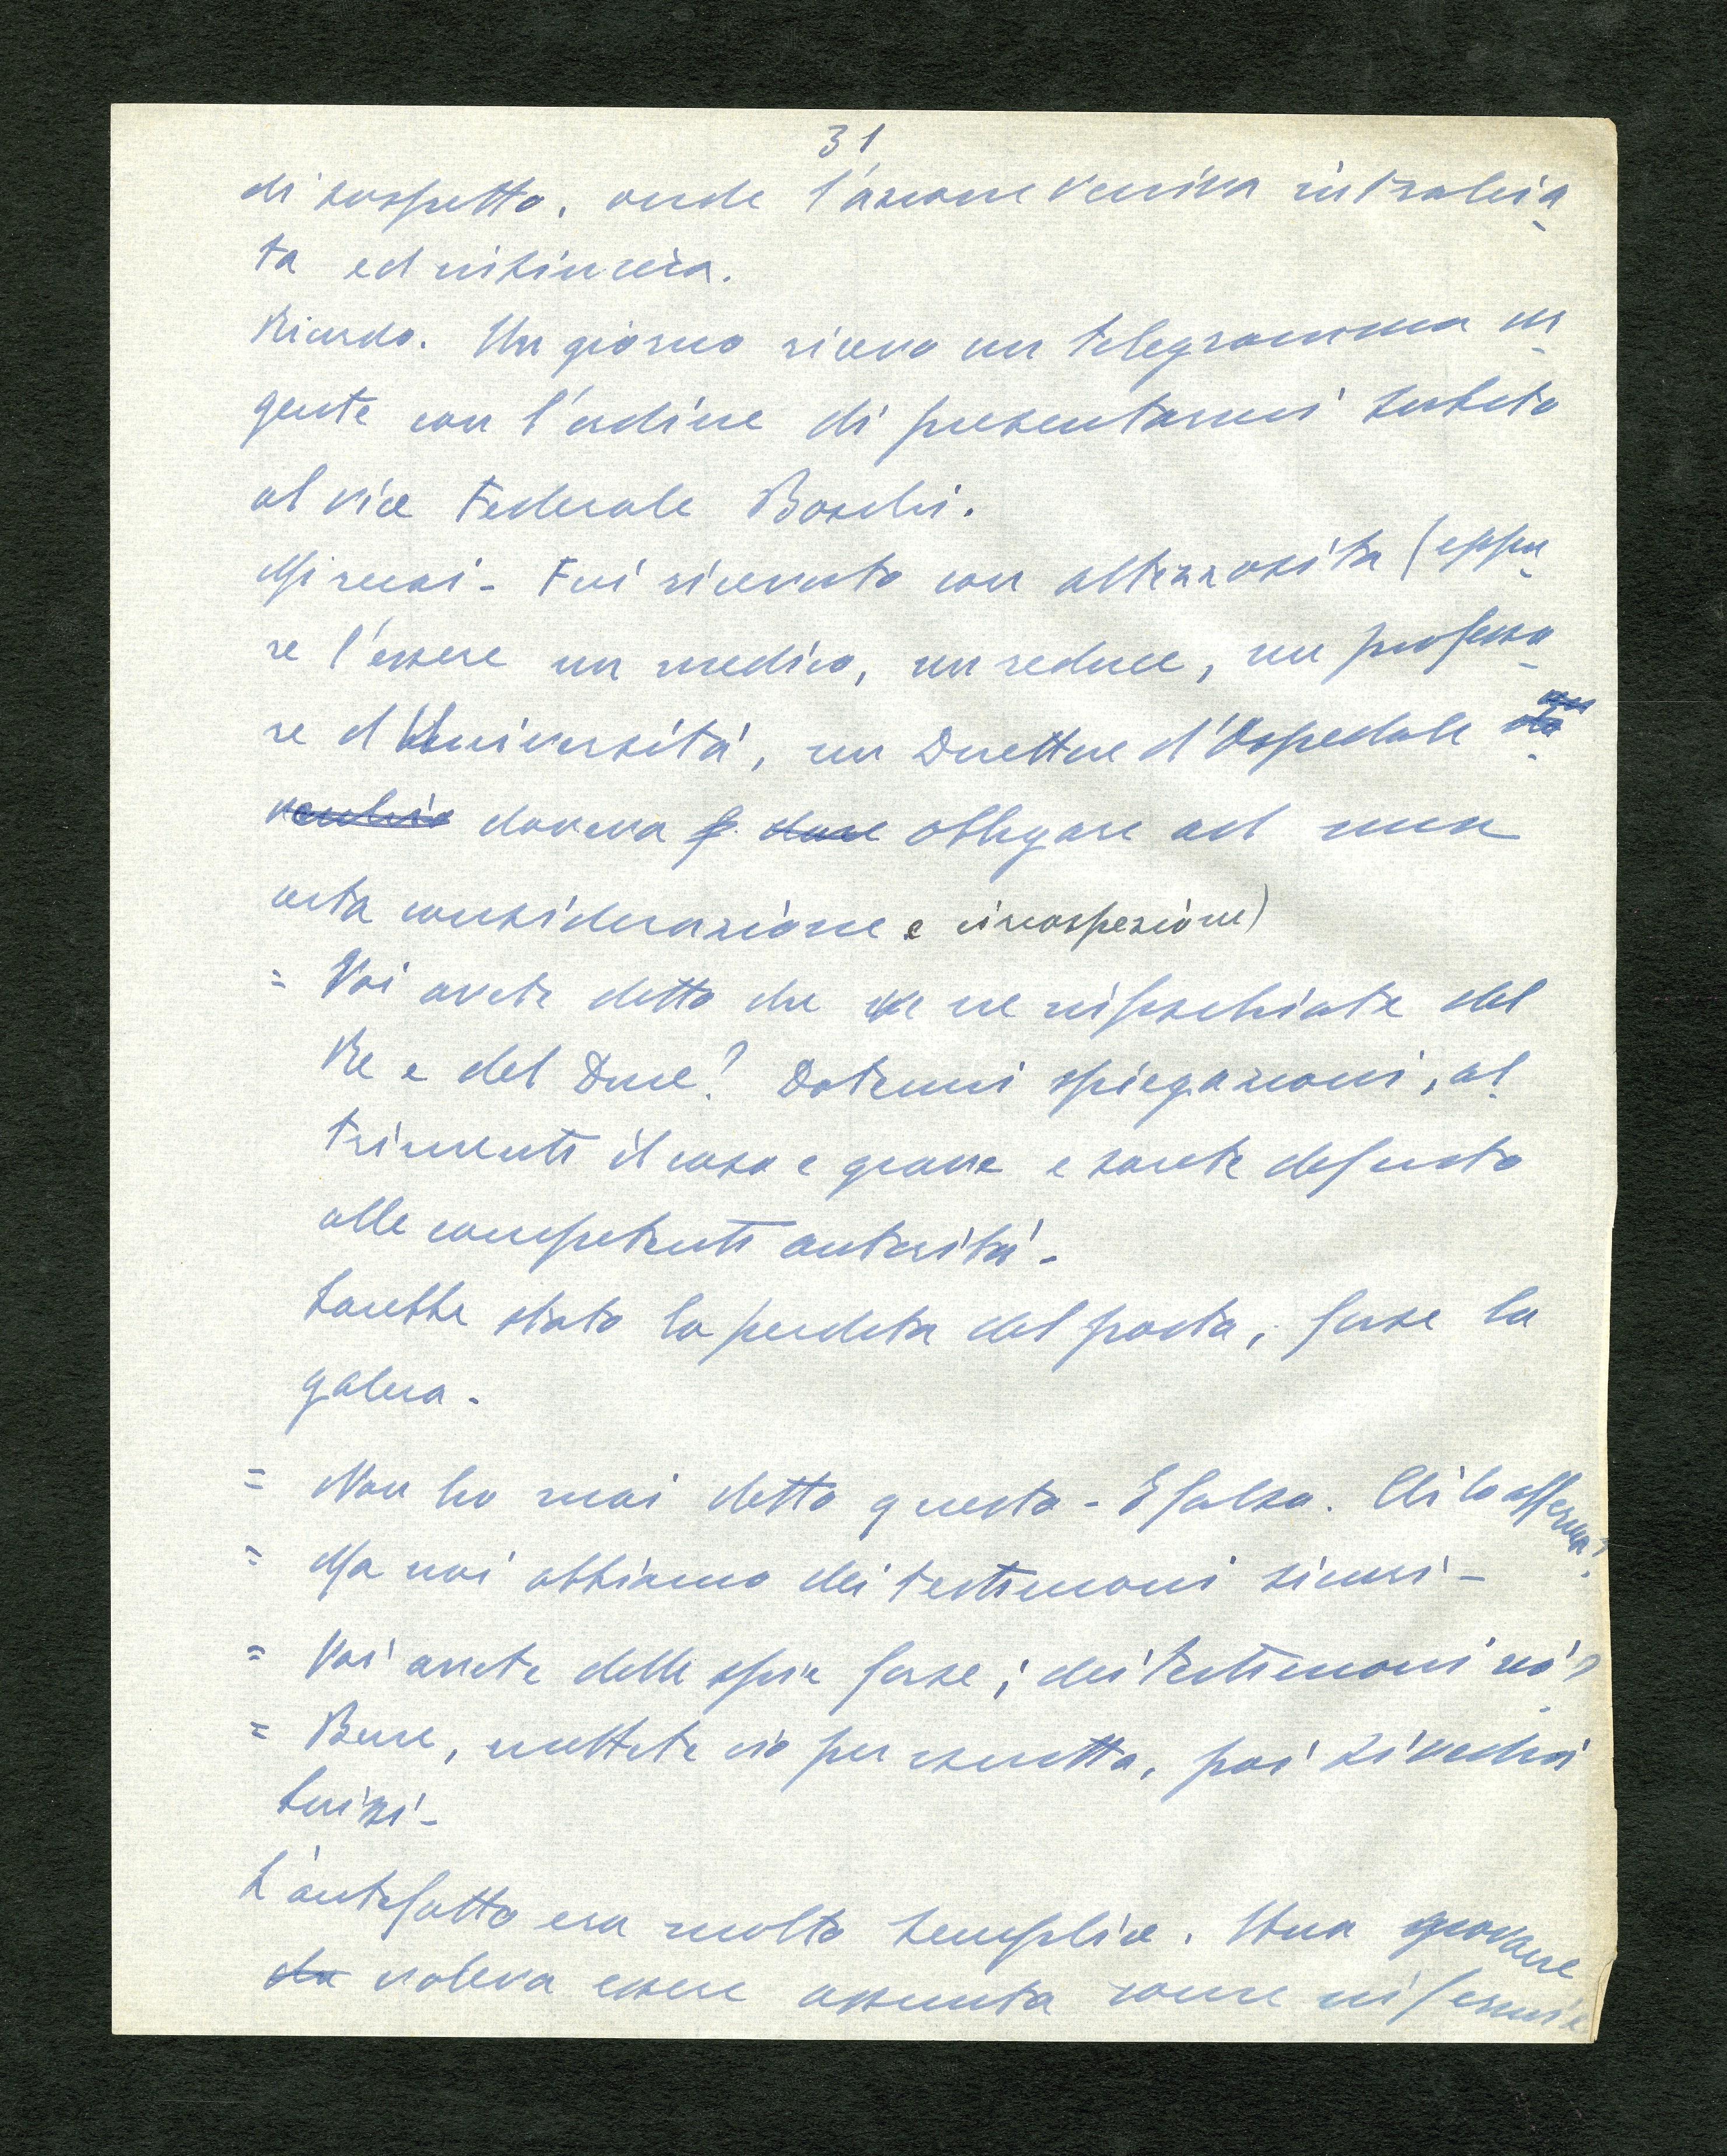 31
di sospetto, onde l'azione veniva intralcia-
ta ed insincera.
Ricordo. Un giorno ricevo un telegramma ur-
gente con l'ordine di presentarmi subito
al vice Federale Boschi.
Mi recai - Fui ricevuto con altezzosità (eppu-
re l'essere un medico, un reduce, un professo-
re d'Università, un Direttore d'Ospedale
doveva obbligare ad una
certa considerazione e circospezione)
= Voi avete detto che ve ne infischiate del
Re e del Duce? Datemi spiegazioni, al-
trimenti il caso e grave e sarete deferito
alle competenti autorità -
Sarebbe stato la perdita del posto, forse la
galera -
= Non ho mai detto questo - E falso. Chi lo afferma?
= Ma noi abbiamo dei testimoni sicuri -
= Voi avete delle spie forse; dei testimoni nò?
= Bene, mettete ciò per iscritto, poi si vedrà
L'antefatto era molto semplice. Una giovane
voleva essere assunta come infermie